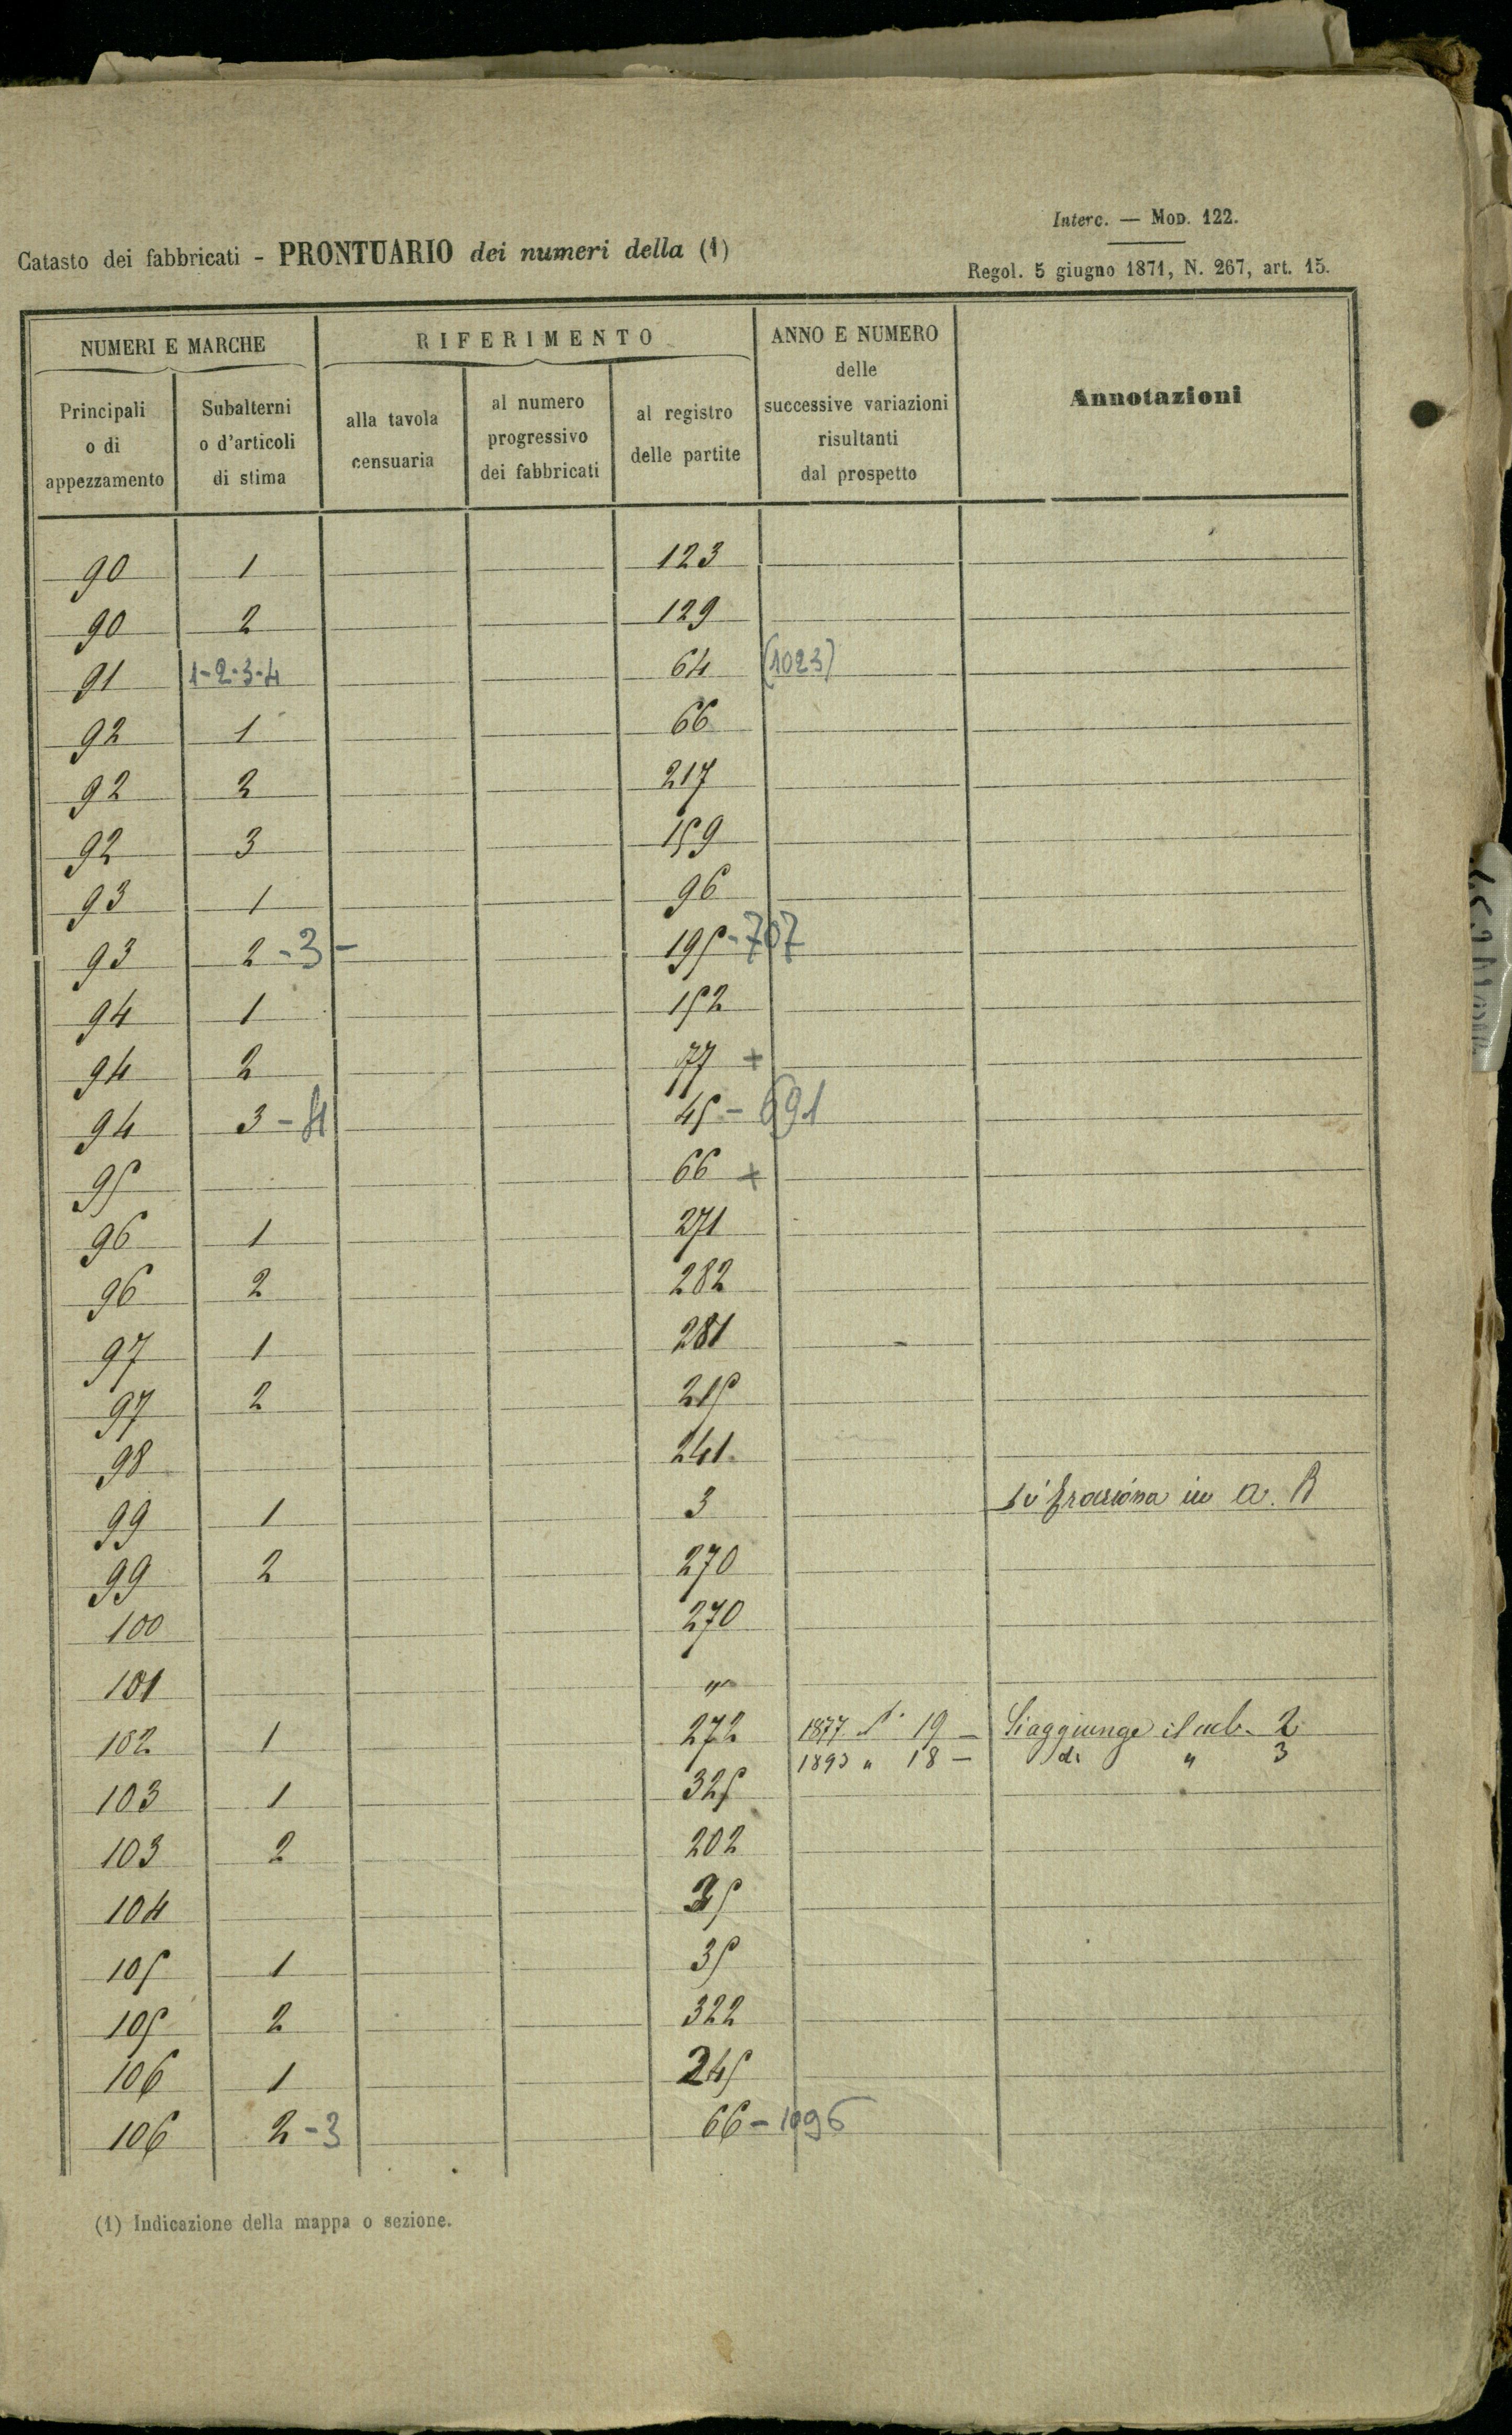 Interc. — Mod. 122.
Catasto dei fabbricati - PRONTUARIO dei numeri della (1)
Regol. 5 giugno 1871, N. 267, art. 15.
NUMERI E MARCHE
RIFERIMENTO
ANNO E NUMERO
delle
successive variazioni
risultanti
dal prospetto
Annotazioni
Principali
o di
appezzamento
Subalterni
o d'articoli
di stima
alla tavola
censuaria
al numero
progressivo
dei fabbricati
al registro
delle partite
90 1 123
90 2 129
91 1-2-3-4 64 (1023)
92 1 66
92 2 217
92 3 159
93 1 96
93 2 - 3 - 195 - 707
94 1 152
94 2 77 +
94 3 - 4 45 - 691
95 66 +
96 1 271
96 2 282
97 1 281
97 2 215
98 241
99 1 3 in a. B
99 2 270
100 270
101 "
102 1 272 1877 N. 19 — Si aggiunge il sub. 2
1893 " 18 — di " 3
103 1 325
103 2 202
104 35
105 1 35
105 2 322
106 1 245
106 2 - 3 66 - 1096
(1) Indicazione della mappa o sezione.